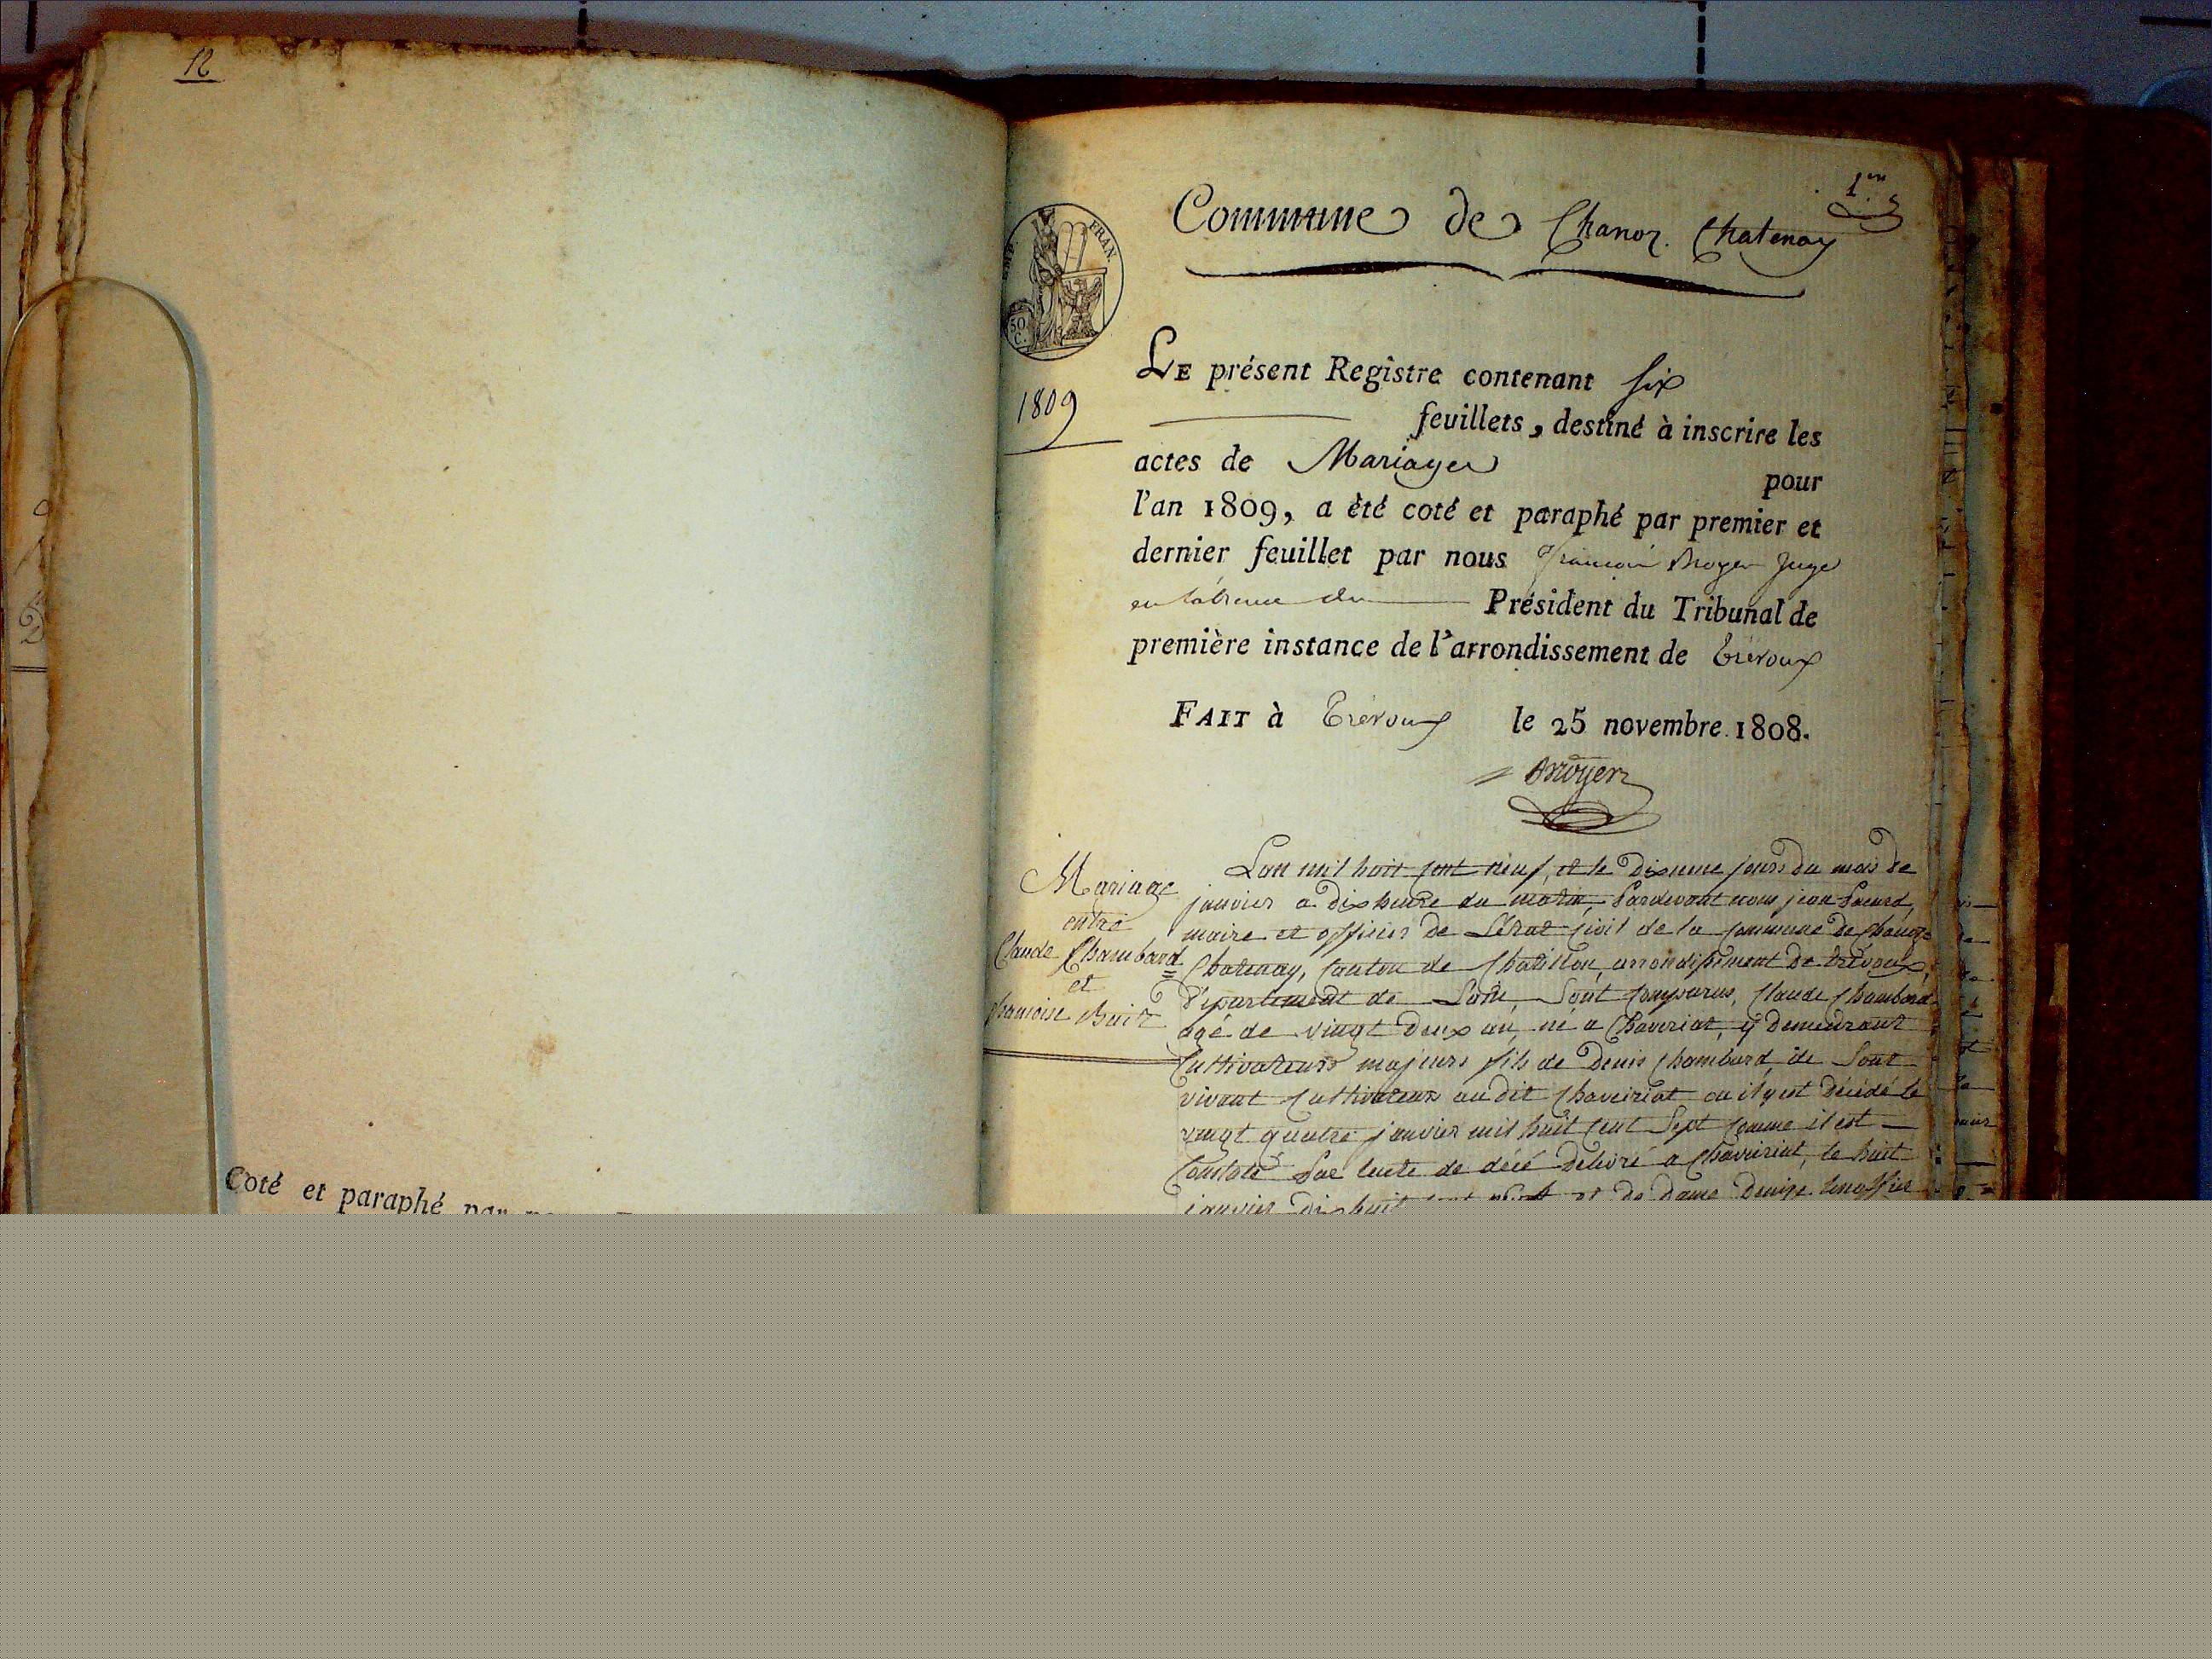 12
Coté et paraphé par
1er
Commune de Chanoz Chatenay
EMP. FRAN.
50 C.
1809
LE présent Registre contenant six
feuillets, destiné à inscrire les
actes de Mariages
pour
l'an 1809, a été coté et paraphé par premier et
dernier feuillet par nous François Juge
en du Président du Tribunal de
première instance de l'arrondissement de Trévoux
FAIT à Trévoux le 25 novembre 1808.
Mariage
entre
Claude Chambard
et
francoise
Lan mil huit cent neuf, et le dixieme jours du mois de
janvier a dix heure du matin, Pardevant nous jean
maire et officier de Létat civil de la commune de Chanoz
Chatenay, canton de Chatillon, arrondissement de trévoux,
Département de Lain, Sont comparus, Claude Chambard
agé de vingt deux an, né a Chaveriat, y demeurant
Cultivateurs majeurs fils de Denis Chambard, de Sont
vivant Cultivateur au dit Chaveiriat ou il y est décédé le
vingt quatre janvier mil huit cent Sept comme il est
Constaté Par lacte de décé délivré a Chaveiriat, le huit
janvier dix huit cent et de dame Denise